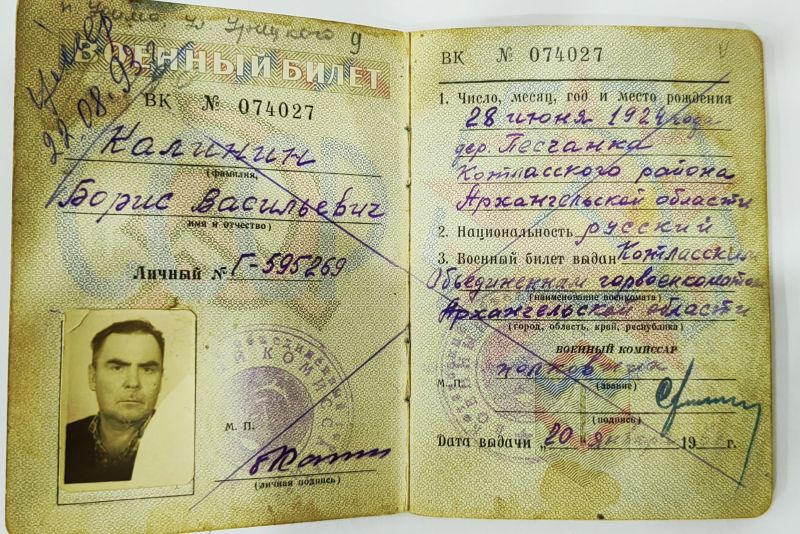 п. Урицкого 9
Умер
22.08.93г
ВОЕННЫЙ БИЛЕТ
ВК № 074027
Калинин
(фамилия,
Борис Васильевич
имя и отчество)
Личный № Г-595269
М. П.
(личная подпись)
ВК № 074027
1. Число, месяц, год и место рождения
28 июня 1924 года
дер. Песчанка
Котласского района
Архангельской области
2. Национальность русский
3. Военный билет выдан Котласским
Объединенным горвоенкоматом
(наименование военкомата)
Архангельской области
(город, область, край, республика)
ВОЕННЫЙ КОМИССАР
полковник
М. П. (звание)
(подпись)
Дата выдачи „20 января 19 г.